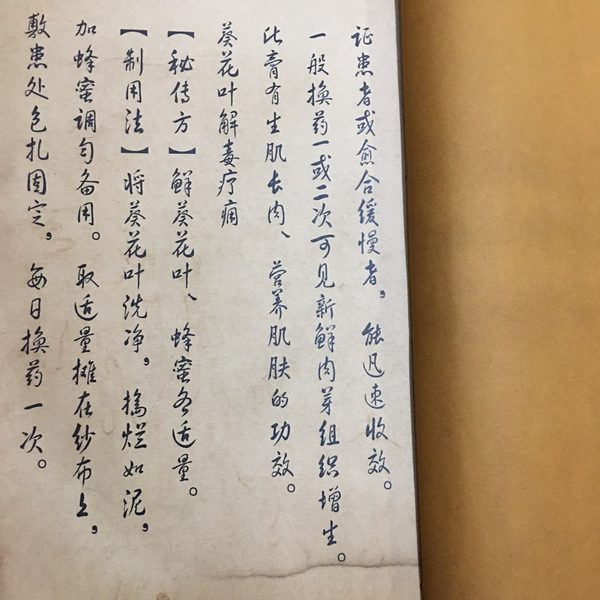 证患者或愈合缓慢者，能迅速收效。
一般换药一或二次可见新鲜肉芽组织增生。
此膏有生肌长肉、营养肌肤的功效。
葵花叶解毒疗痈
【秘传方】鲜葵花叶、蜂蜜各适量。
【制用法】将葵花叶洗净，捣烂如泥，
加蜂蜜调匀备用。取适量摊在纱布上，
敷患处包扎固定，每日换药一次。